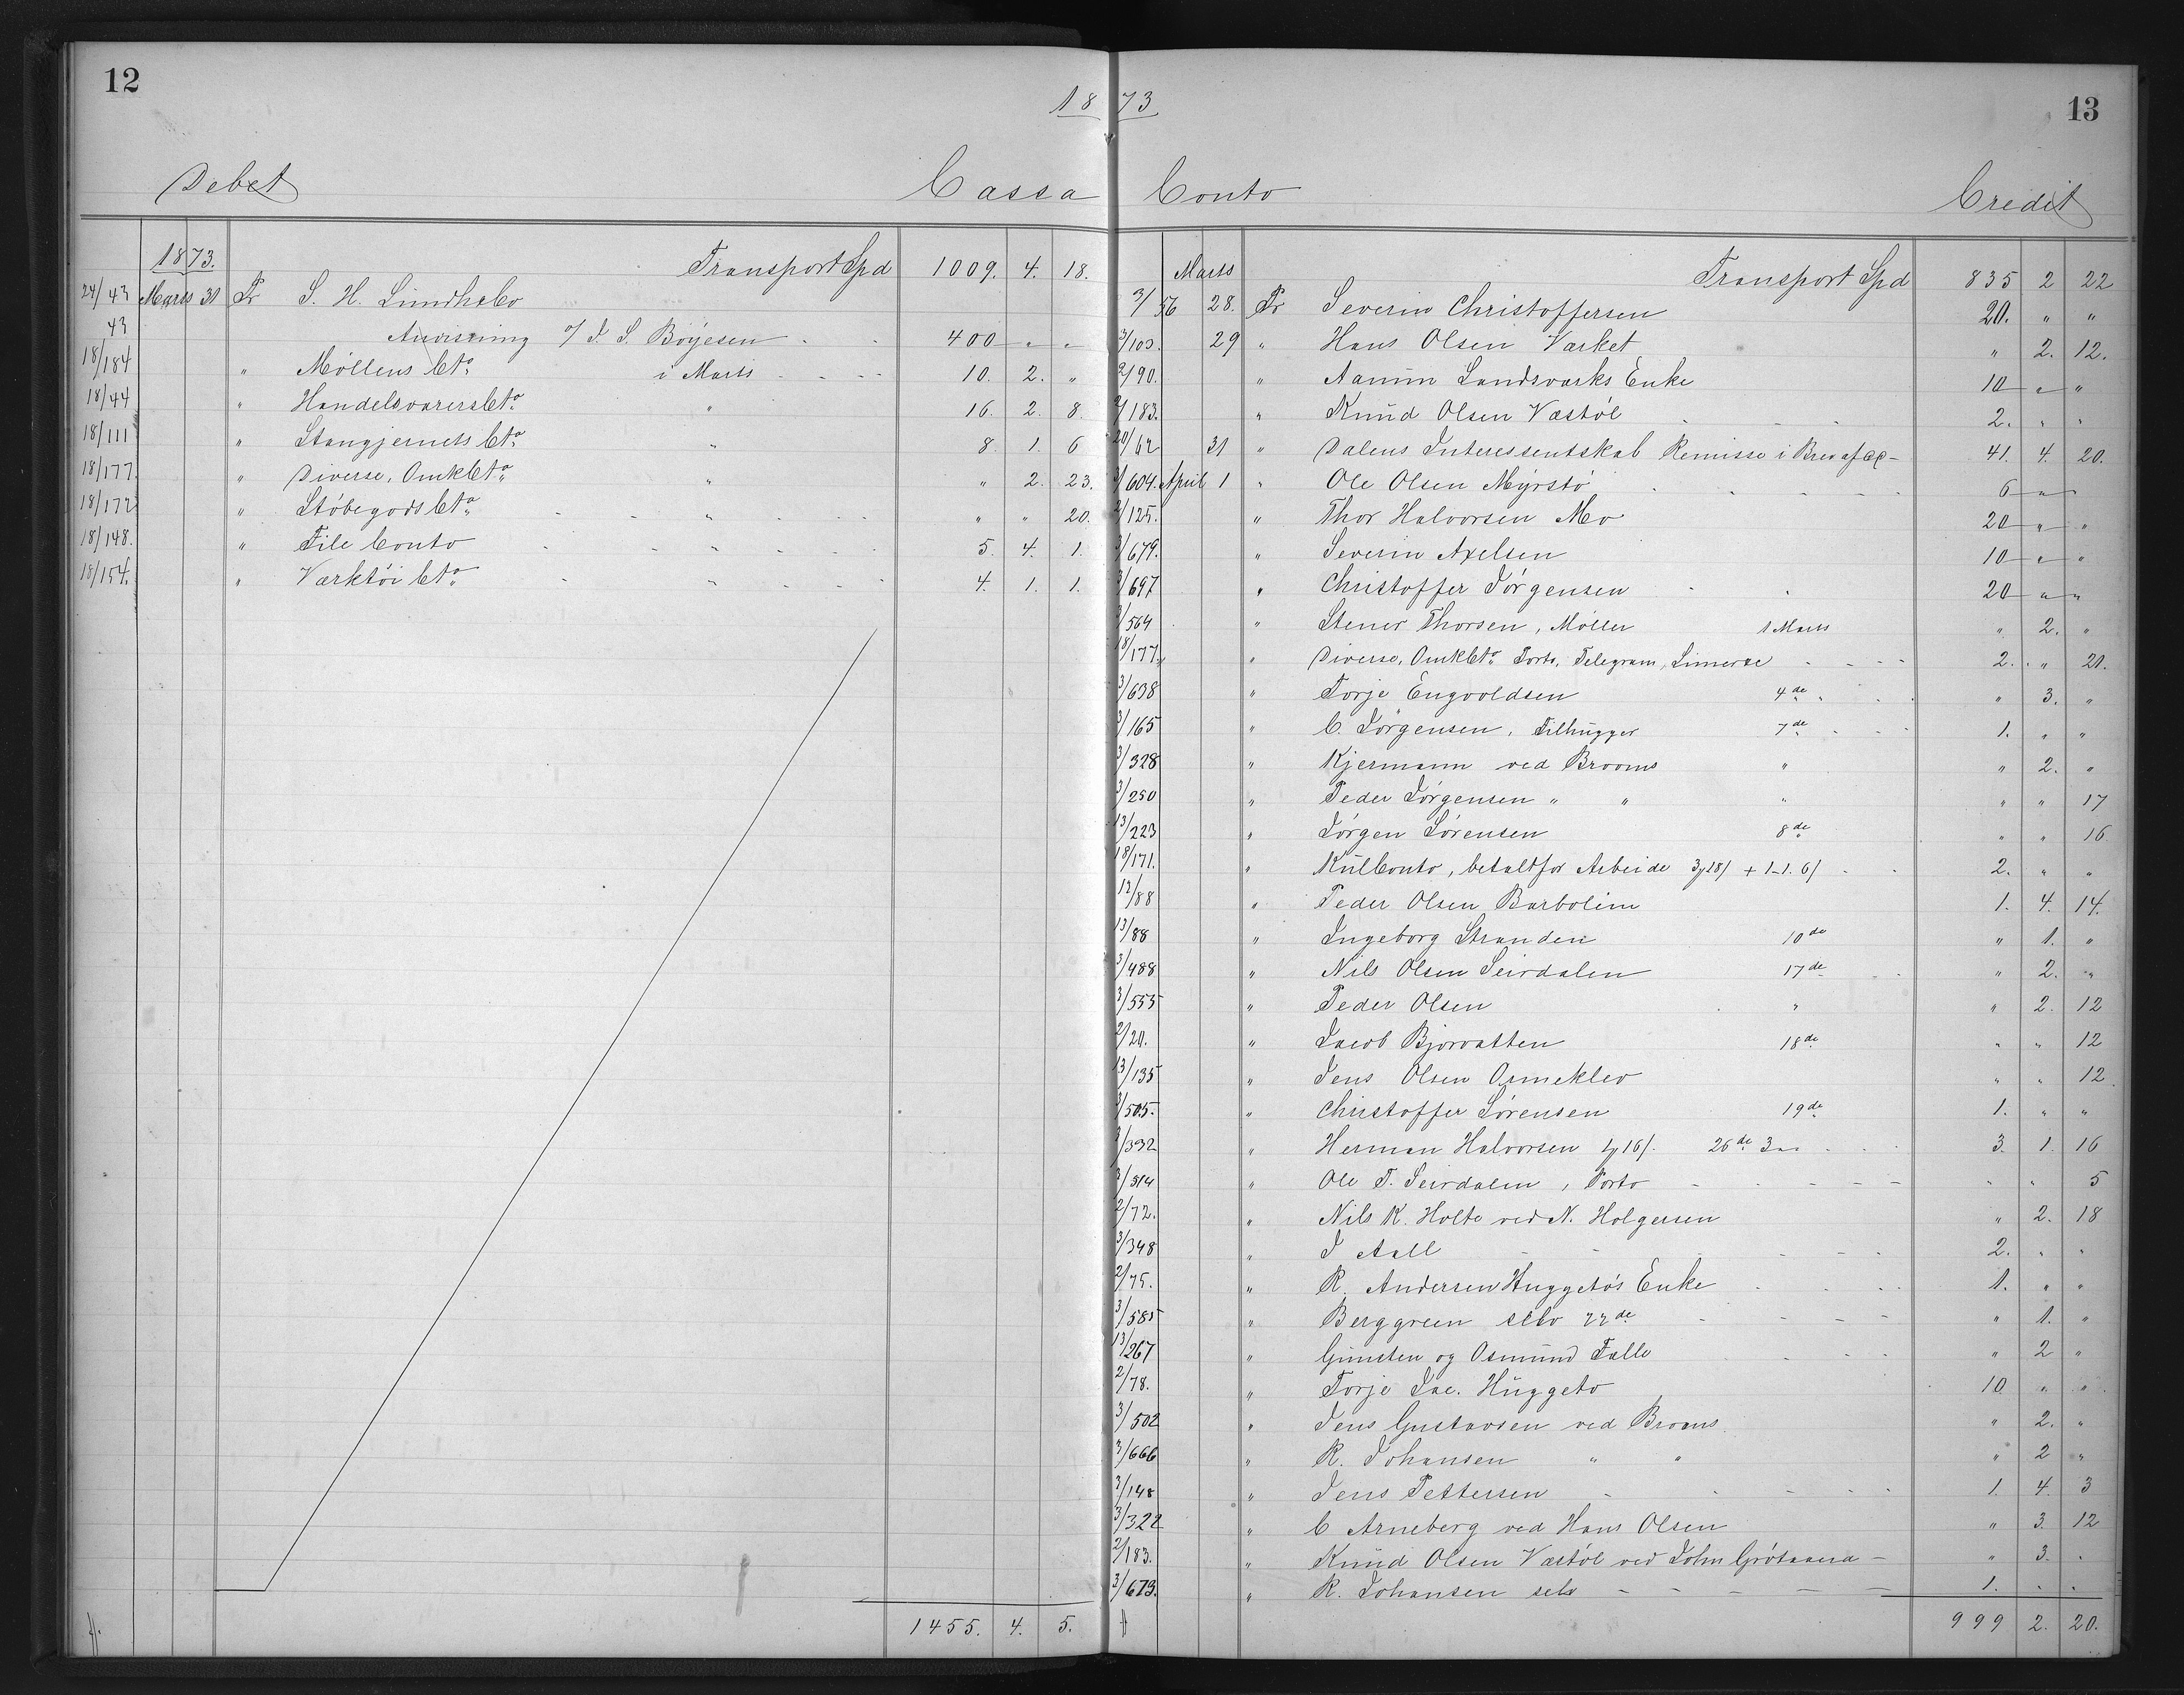 12
18 73
13
Debet
Cassa Conto
Credit
1873. Transport Spd 1009. 4. 18.
24/43 Marts 31 Pr S. H. Lundhsbo
43 Anvisning o/ J. S. Böyesen 400 " "
18/184 " Möllens Cto i Marts 10. 2. "
18/44 " Handelsvarers Cto " 16. 2. 8.
18/111 " Stangjernets Cto " 8. 1. 6
18/177 " Diverse, Omk Cto " " 2. 23.
18/172 " Stöbegods Cto " " " 20.
18/148. " File Conto " 5. 4. 1.
18/154. " Værktöi Cto " 4. 1. 1.
1455. 4. 5.
Marts Transport Spd 835 2 22
3/56 28. Pr Severin Christoffersen 20. " "
3/103. 29 " Hans Olsen Værket " 2. 12.
2/90. " Aanun Landsværks Enke 10 " "
2/183. " Knud Olsen Væstöl 2. " "
20/62 31 " Dalens Interessentskab Remisse i Brev af 41. 4. 20.
3/604. April 1 " Ole Olsen Myrstö 6 " "
2/125. " Thor Halvorsen Mo 20 " "
3/679. " Severin Axelsen 10 " "
3/697 " Christoffer Jörgensen 20 " "
3/564 " Stener Thorsen, Möller 1 Marts " 2. "
18/177. " Diverse, Omk Cto Porto, Telegram, 2. " 21.
3/638 " Torje Engvoldsen 4de " 3. "
3/165 " C. Jörgensen, Filhugger 7de 1. " "
3/328 " Kjermann ved Brooms " " 2. "
3/250 " Peder Jörgensen " " " " " 17
13/223 " Jörgen Sörensen 8de " " 16
18/171. " Kul Conto, betalt for Arbeide 3/18/ + 1-1. 6/ 2. " "
12/88 " Peder Olsen Barbolim 1. 4. 14.
13/88 " Ingeborg Stranden 10de " 1. "
3/488 " Nils Olsen Seirdalen 17de " 2. "
3/553 " Peder Olsen " " 2. 12
2/20. " Jacob Bjorvatten 18de " " 12
13/135 " Jens Olsen Ormeklev " " 12
3/505. " Christoffer Sörensen 19de 1. " "
3/392 " Herman Halvorsen 1/16/. 26de 3 " " 3. 1. 16
3/314 " Ole T. Seirdalen, Porto " " 5
2/72. " Nils K. Holte ved N. Holgersen " 2. 18
3/348 " J Aall 2. " "
2/75. " R. Andersen Huggetös Enke 1. " "
3/585 " Berggreen selv 22de " 1. "
13/267 " Gunsten og Osmund Falle " 2 "
2/78. " Torje Jac. Huggeto 10 " "
3/502 " Jens Gustavsen ved Brooms " 2. "
3/666 " R. Johansen " " " 2 "
3/148 " Jens Pettersen 1. 4. 3
3/322 " C Arneberg ved Hans Olsen " 3. 12
2/183. " Knud Olsen Væstöl ved John Grötaana " 3. "
3/673. " R. Johansen selv 1. " "
999 2. 20.